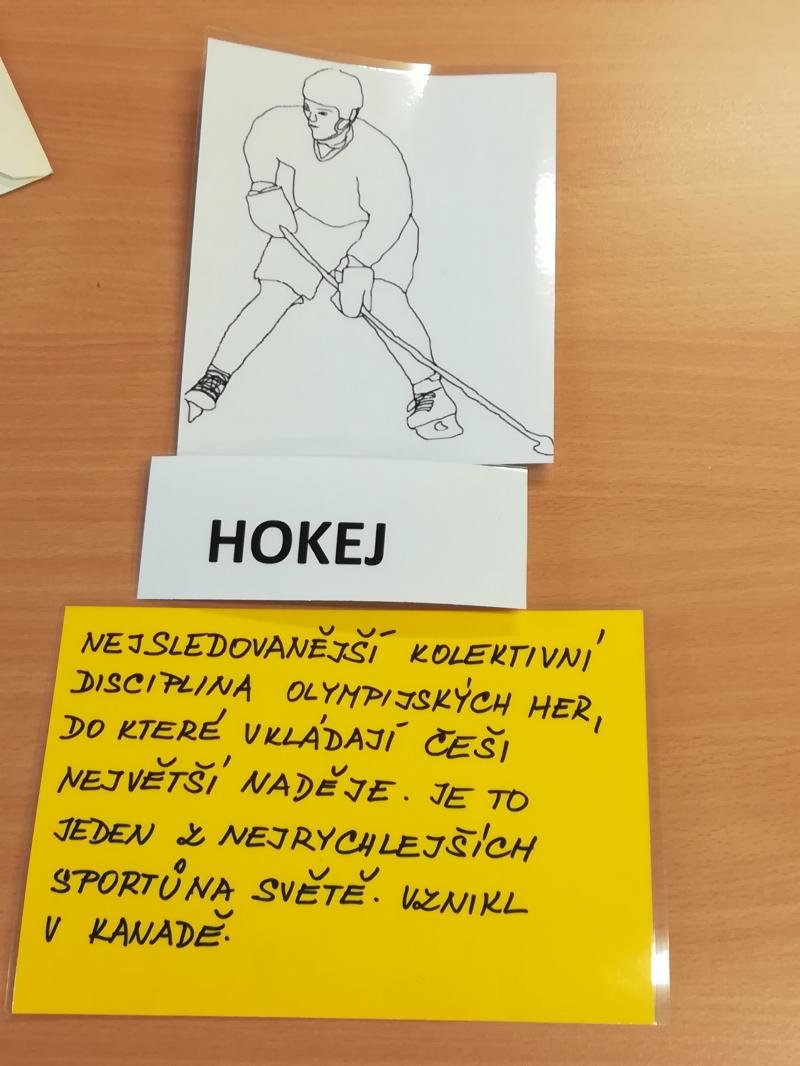 HOKEJ
NEJSLEDOVANĚJŠÍ KOLEKTIVNÍ
DISCIPLINA OLYMPIJSKÝCH HER,
DO KTERÉ VKLÁDAJÍ ČEŠI
NEJVĚTŠÍ NADĚJE. JE TO
JEDEN Z NEJRYCHLEJŠÍCH
SPORTŮ NA SVĚTĚ. VZNIKL
V KANADĚ.